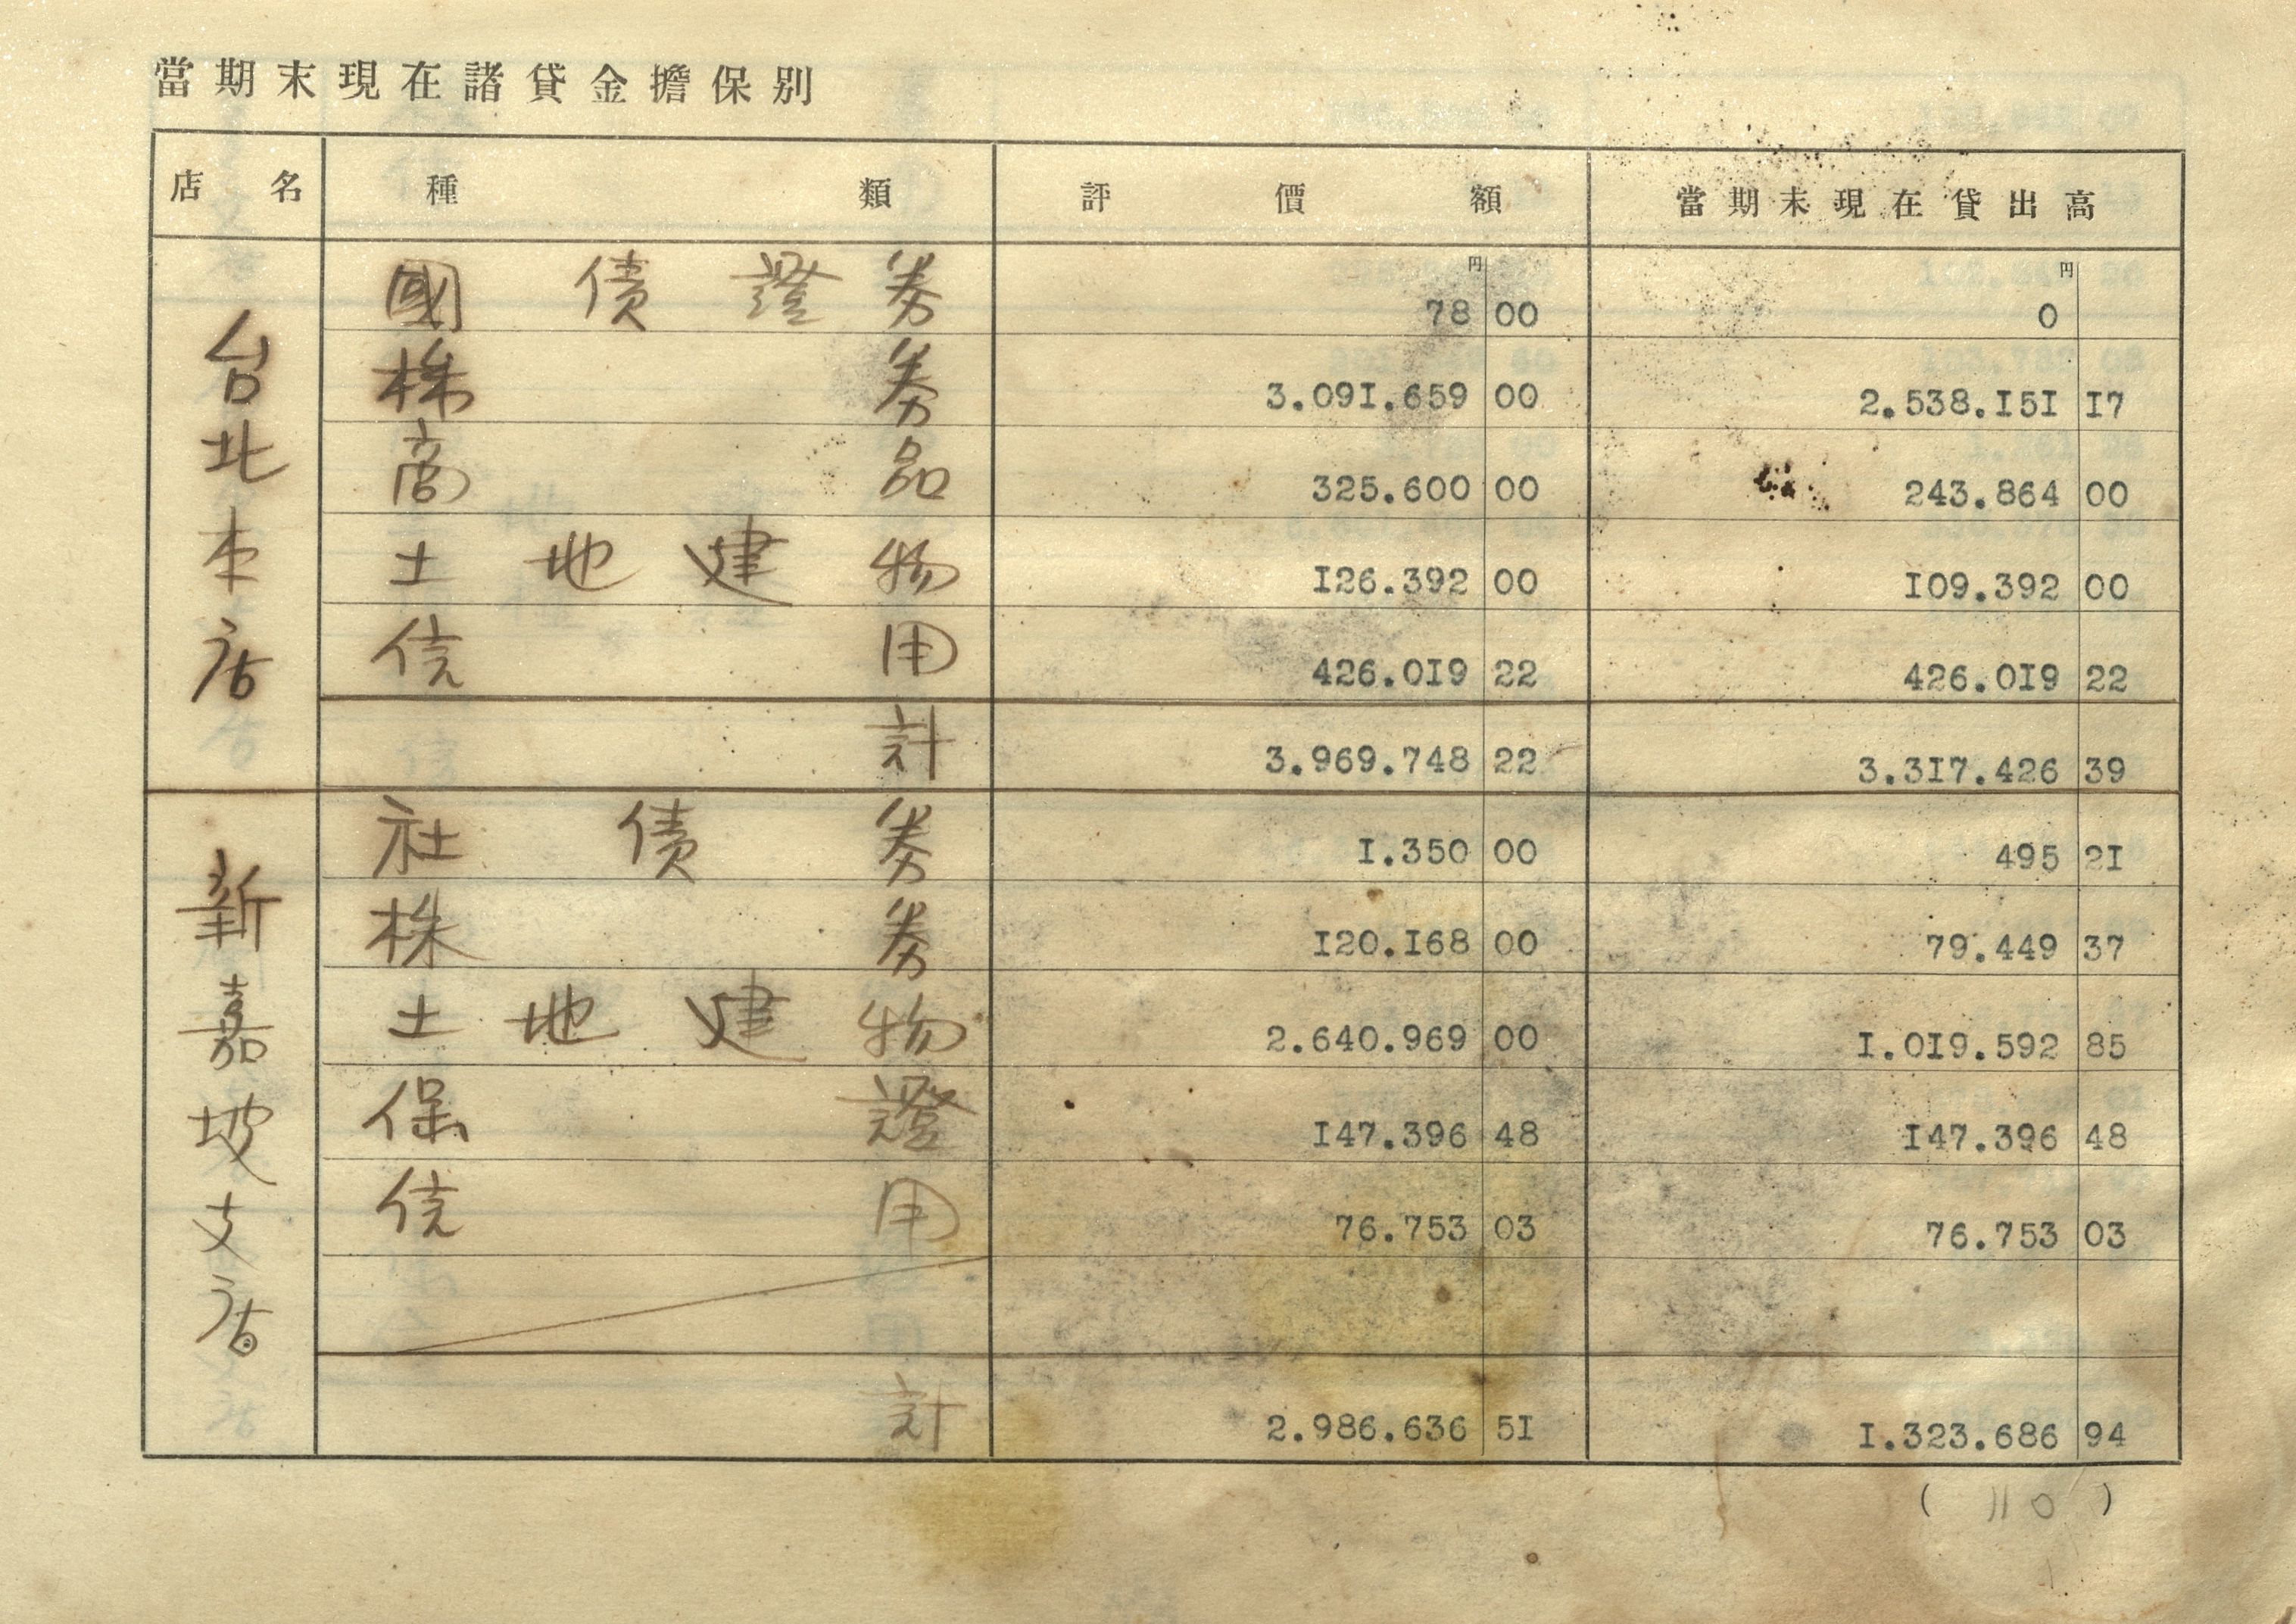 當期末現在諸貸金擔保別
店名 種類 評價額 當期末現在貸出高
円 円
台北本店 國債證券 78 00 0
株券 3.091.659 00 2.538.151 17
商品 325.600 00 243.864 00
土地建物 126.392 00 109.392 00
信用 426.019 22 426.019 22
計 3.969.748 22 3.317.426 39
新嘉坡支店 社債券 1.350 00 495 21
株券 120.168 00 79.449 37
土地建物 2.640.969 00 1.019.592 85
保證 147.396 48 147.396 48
信用 76.753 03 76.753 03
計 2.986.636 51 1.323.686 94
( 110 )